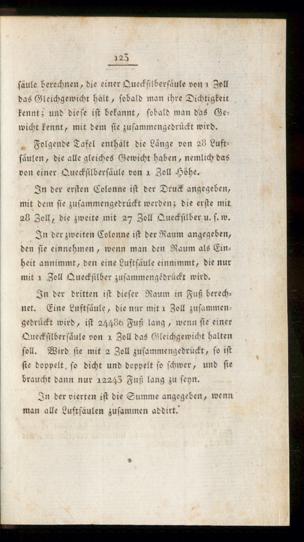 123
säule berechnen, die einer Quecksilbersäule von 1 Zoll
das Gleichgewicht hält, sobald man ihre Dichtigkeit
kennt; und diese ist bekannt, sobald man das Ge-
wicht kennt, mit dem sie zusammengedrückt wird.
Folgende Tafel enthält die Länge von 28 Luft-
säulen, die alle gleiches Gewicht haben, nemlich das
von einer Quecksilbersäule von 1 Zoll Höhe.
In der ersten Colonne ist der Druck angegeben,
mit dem sie zusammengedrückt werden; die erste mit
28 Zoll, die zweite mit 27 Zoll Quecksilber u. s. w.
In der zweiten Colonne ist der Raum angegeben,
den sie einnehmen, wenn man den Raum als Ein-
heit annimmt, den eine Luftsäule einnimmt, die nur
mit 1 Zoll Quecksilber zusammengedrückt wird.
In der dritten ist dieser Raum in Fuß berech-
net. Eine Luftsäule, die nur mit 1 Zoll zusammen-
gedrückt wird, ist 24486 Fuß lang, wenn sie einer
Quecksilbersäule von 1 Zoll das Gleichgewicht halten
soll. Wird sie mit 2 Zoll zusammengedrückt, so ist
sie doppelt, so dicht und doppelt so schwer, und sie
braucht dann nur 12243 Fuß lang zu seyn.
In der vierten ist die Summe angegeben, wenn
man alle Luftsäulen zusammen addirt.